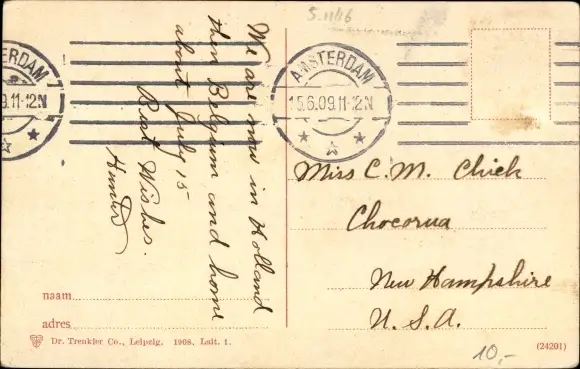 5.11/16
AMSTERDAM
15.6.09.11-12N
STERDAM
9.11-12N
We are now in Holland
then Belgium and home
about July 15
Best Wishes.
Hunter
Miss C. M. Chick
Chocorua
New Hampshire
U. S. A.
naam
adres
Dr. Trenkler Co., Leipzig. 1908. Lait. 1.
(24201)
10,-